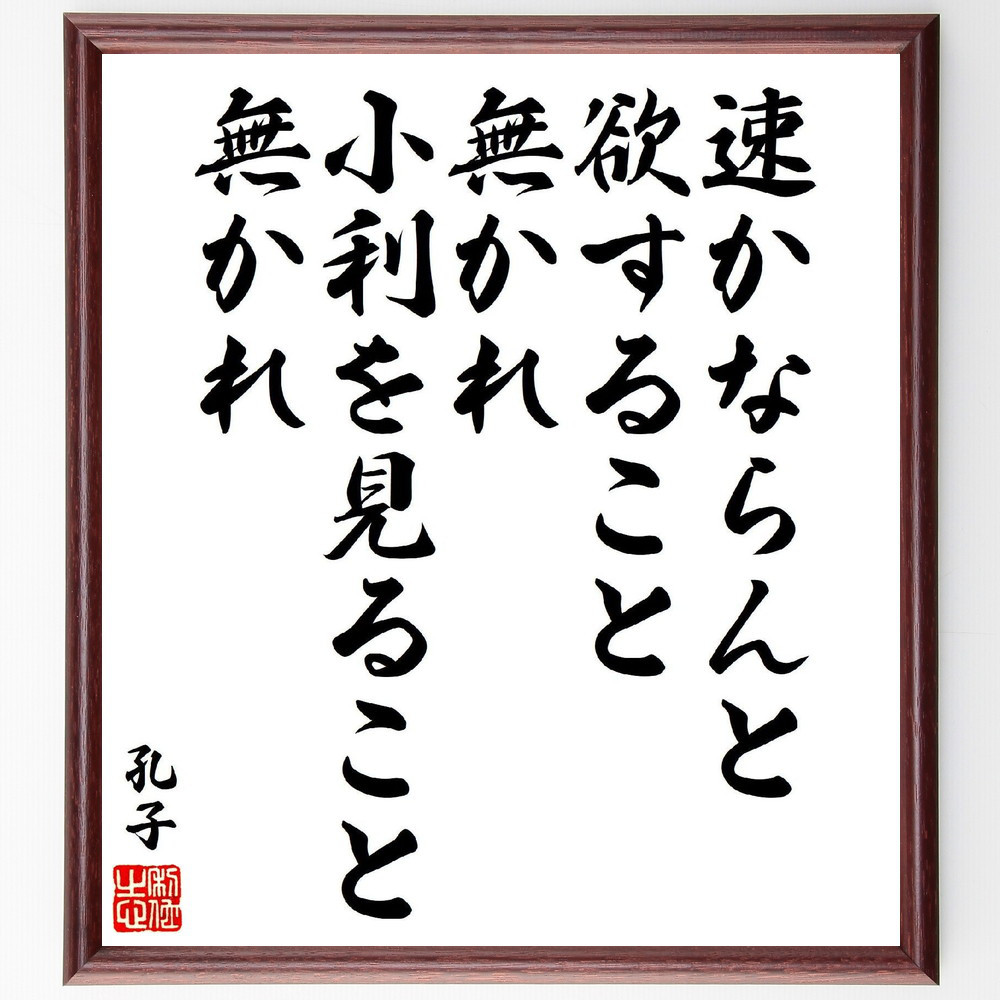 速かならんと
欲すること
無かれ
小利を見ること
無かれ
孔子